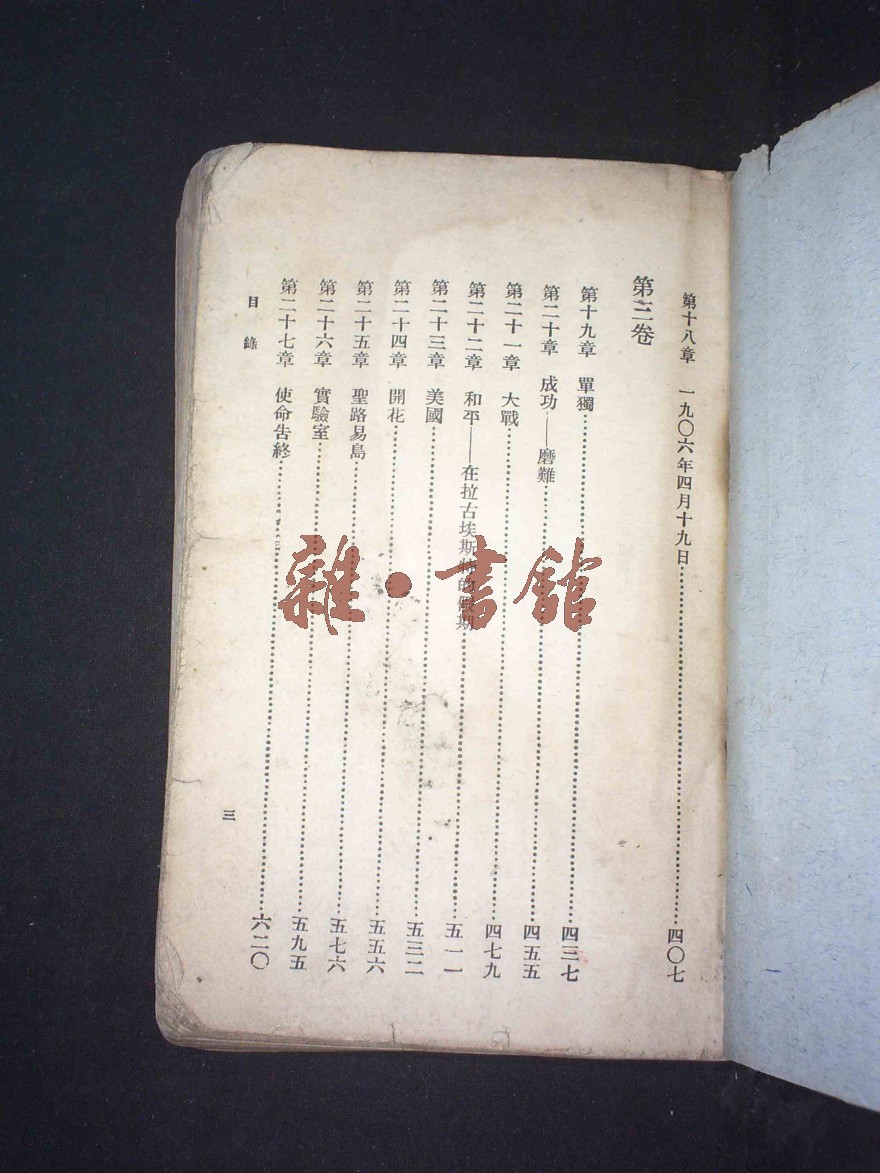 第十八章 一九〇六年四月十九日……四〇七
第三卷
第十九章 單獨……四三七
第二十章 成功——磨難……四五五
第二十一章 大戰……四七九
第二十二章 和平——在拉古埃斯的假期……五一一
第二十三章 美國……五三二
第二十四章 開花……五五六
第二十五章 聖路易島……五七六
第二十六章 實驗室……五九五
第二十七章 使命告終……六二〇
目錄
三
雜·書館